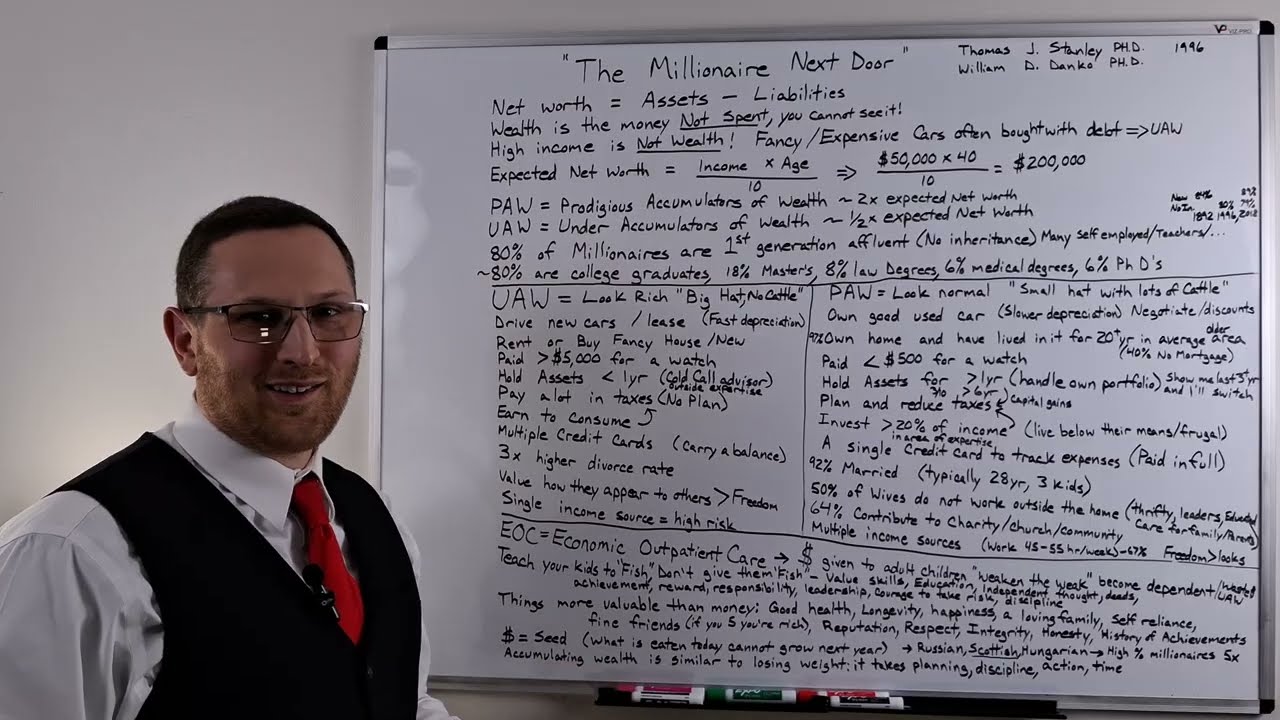 VIZ-PRO
"The Millionaire Next Door"
Thomas J. Stanley PH.D. 1996
William D. Danko PH.D.
Net worth = Assets - Liabilities
Wealth is the money Not Spent, you cannot see it!
High income is Not Wealth! Fancy/Expensive Cars often bought with debt => UAW
Expected Net Worth = Income x Age / 10 => $50,000 x 40 / 10 = $200,000
PAW = Prodigious Accumulators of Wealth ~ 2x expected Net Worth
UAW = Under Accumulators of Wealth ~ 1/2x expected Net Worth
Now 84% 80% 79%
No In 1892 1996, 2012
80% of Millionaires are 1st generation affluent (No inheritance) Many self employed/Teachers/...
~80% are college graduates, 18% Master's, 8% law Degrees, 6% medical degrees, 6% Ph D's
UAW = Look Rich "Big Hat, No Cattle"
Drive new cars / lease (Fast depreciation)
Rent or Buy Fancy House/New
Paid >$5,000 for a watch
Hold Assets < 1yr (Cold Call advisor)
outside expertise
Pay a lot in taxes (No Plan)
Earn to Consume
Multiple Credit Cards (carry a balance)
3x higher divorce rate
Value how they appear to others > Freedom
Single income source = high risk
PAW = Look normal "Small hat with lots of Cattle"
Own good used car (Slower depreciation) Negotiate/discounts
97% Own home and have lived in it for 20+yr in average older area
(40% No Mortgage)
Paid < $500 for a watch
Hold Assets for >1yr (handle own portfolio) Show me last 3+yr and I'll switch
> 6yr
Plan and reduce taxes & Capital gains
Invest >20% of income (live below their means/frugal)
in area of expertise,
A single Credit card to track expenses (Paid in full)
92% Married (typically 28yr, 3 kids)
50% of Wives do not work outside the home (thrifty, leaders, Educated
Care for family/Parents)
64% Contribute to Charity/church/community
Multiple income sources (Work 45-55 hr/week)-67% Freedom > looks
EOC = Economic Outpatient Care → $ given to adult children "weaken the weak" become dependent/
UAW
Teach your kids to "Fish," Don't give them "Fish" - Value skills, Education, Independent thought, deeds,
achievement, reward, responsibility, leadership, courage to take risk, discipline
Things more valuable than money: Good health, Longevity, happiness, a loving family, Self reliance,
fine friends (if you 5 you're rich), Reputation, Respect, Integrity, Honesty, History of Achievements
$ = Seed (What is eaten today cannot grow next year) → Russian, Scottish, Hungarian → High % millionaires 5x
Accumulating wealth is similar to losing weight: it takes planning, discipline, action, time
EXPO